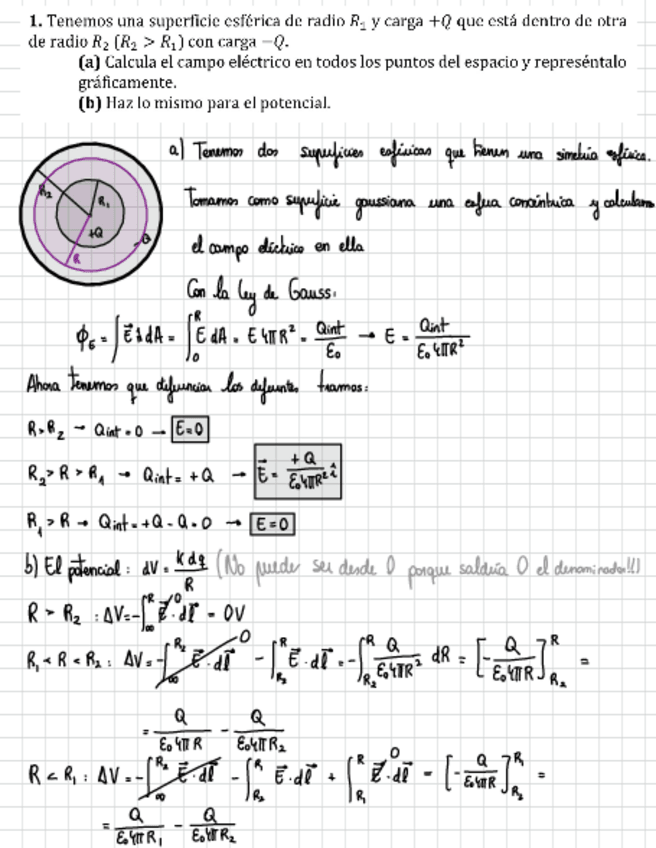 1. Tenemos una superficie esférica de radio R₁ y carga +Q que está dentro de otra
de radio R₂ (R₂ > R₁) con carga −Q.
(a) Calcula el campo eléctrico en todos los puntos del espacio y represéntalo
gráficamente.
(b) Haz lo mismo para el potencial.
a) Tenemos dos superficies esféricas que tienen una simetría esférica.
R₂
R₁
+Q
-Q
R
Tomamos como superficie gaussiana una esfera concéntrica y calculamos
el campo eléctrico en ella
Con la ley de Gauss:
ϕ_E = ∫ E⃗ dA = ∫₀ᴿ E dA = E 4πR² = Qint/ε₀ → E = Qint/(ε₀ 4πR²)
Ahora tenemos que diferenciar los diferentes tramos:
R > R₂ → Qint = 0 → E=0
R₂ > R > R₁ → Qint = +Q → E⃗ = +Q/(ε₀4πR²) î
R₁ > R → Qint = +Q - Q = 0 → E=0
b) El potencial: dV = k dq/R (No puede ser desde 0 porque saldría 0 el denominador!!)
R > R₂ : ΔV = -∫_∞^R E⃗⁰ · dl⃗ = 0V
R₁ < R < R₂ : ΔV = -∫_∞^R₂ E⃗ · dl⃗ ⁰ - ∫_R₂^R E⃗ · dl⃗ = -∫_R₂^R Q/(ε₀4πR²) dR = [-Q/(ε₀4πR)]_R₂^R =
= Q/(ε₀4πR) - Q/(ε₀4πR₂)
R < R₁ : ΔV = -∫_∞^R₂ E⃗ · dl⃗ - ∫_R₂^R₁ E⃗ · dl⃗ + ∫_R₁^R E⃗⁰ · dl⃗ = [-Q/(ε₀4πR)]_R₂^R₁ =
= Q/(ε₀4πR₁) - Q/(ε₀4πR₂)